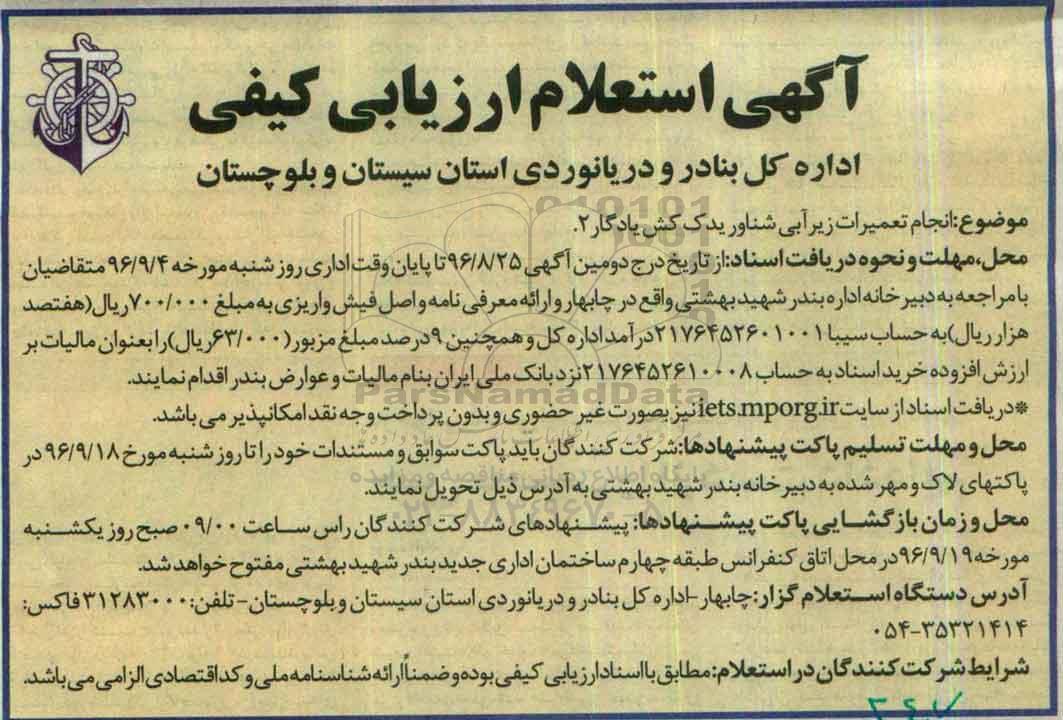 آگهی استعلام ارزیابی کیفی
اداره کل بنادر و دریانوردی استان سیستان و بلوچستان
موضوع:انجام تعمیرات زیرآبی شناور یدک کش یادگار۲.
محل،مهلت و نحوه دریافت اسناد:از تاریخ درج دومین آگهی ۹۶/۸/۲۵ تا پایان وقت اداری روز شنبه مورخه ۹۶/۹/۴ متقاضیان
با مراجعه به دبیرخانه اداره بندر شهید بهشتی واقع در چابهار و ارائه معرفی نامه و اصل فیش واریزی به مبلغ ۷۰۰/۰۰۰ریال(هفتصد
هزار ریال)به حساب سیبا ۲۱۷۶۴۵۲۶۰۱۰۰۱درآمد اداره کل و همچنین ۹درصد مبلغ مزبور(۶۳/۰۰۰ریال)را بعنوان مالیات بر
ارزش افزوده خرید اسناد به حساب ۲۱۷۶۴۵۲۶۱۰۰۰۸نزد بانک ملی ایران بنام مالیات و عوارض بندر اقدام نمایند.
*دریافت اسناد از سایت iets.mporg.ir نیز بصورت غیر حضوری و بدون پرداخت وجه نقد امکانپذیر می باشد.
محل و مهلت تسلیم پاکت پیشنهادها:شرکت کنندگان باید پاکت سوابق و مستندات خود را تا روز شنبه مورخ ۹۶/۹/۱۸ در
پاکتهای لاک و مهر شده به دبیرخانه بندر شهید بهشتی به آدرس ذیل تحویل نمایند.
محل و زمان بازگشایی پاکت پیشنهادها: پیشنهادهای شرکت کنندگان راس ساعت ۰۹/۰۰ صبح روز یکشنبه
مورخه ۹۶/۹/۱۹در محل اتاق کنفرانس طبقه چهارم ساختمان اداری جدید بندر شهید بهشتی مفتوح خواهد شد.
آدرس دستگاه استعلام گزار:چابهار-اداره کل بنادر و دریانوردی استان سیستان و بلوچستان-تلفن:۳۱۲۸۳۰۰۰فاکس:
۰۵۴-۳۵۳۲۱۴۱۴
شرایط شرکت کنندگان در استعلام:مطابق با اسناد ارزیابی کیفی بوده و ضمناً ارائه شناسنامه ملی و کد اقتصادی الزامی می باشد.
ParsNamadData
پایگاه اطلاع رسانی مناقصه و مزایده
۰۲۱-۸۸۳۴۹۶۷۰-۵